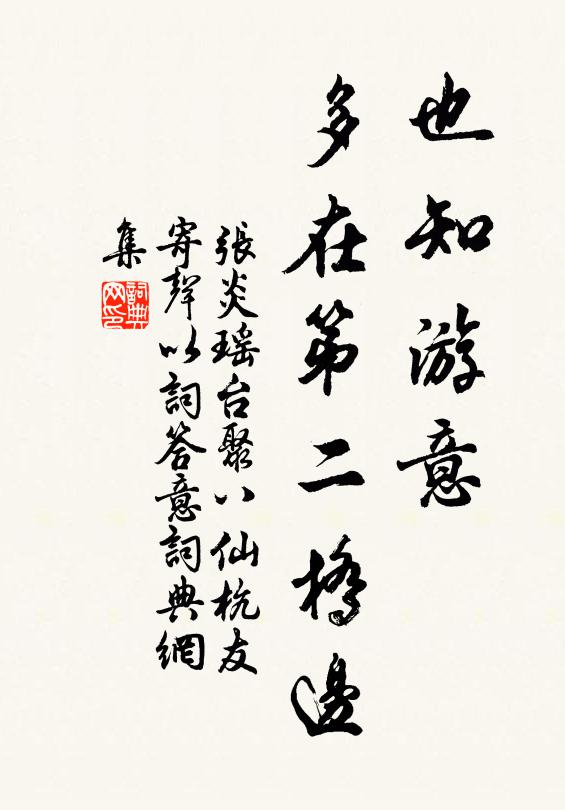 也知游意
多在第二橋邊
張炎瑶台聚八仙杭友
寄聲以詞答意詞典網
集
詞典
网印